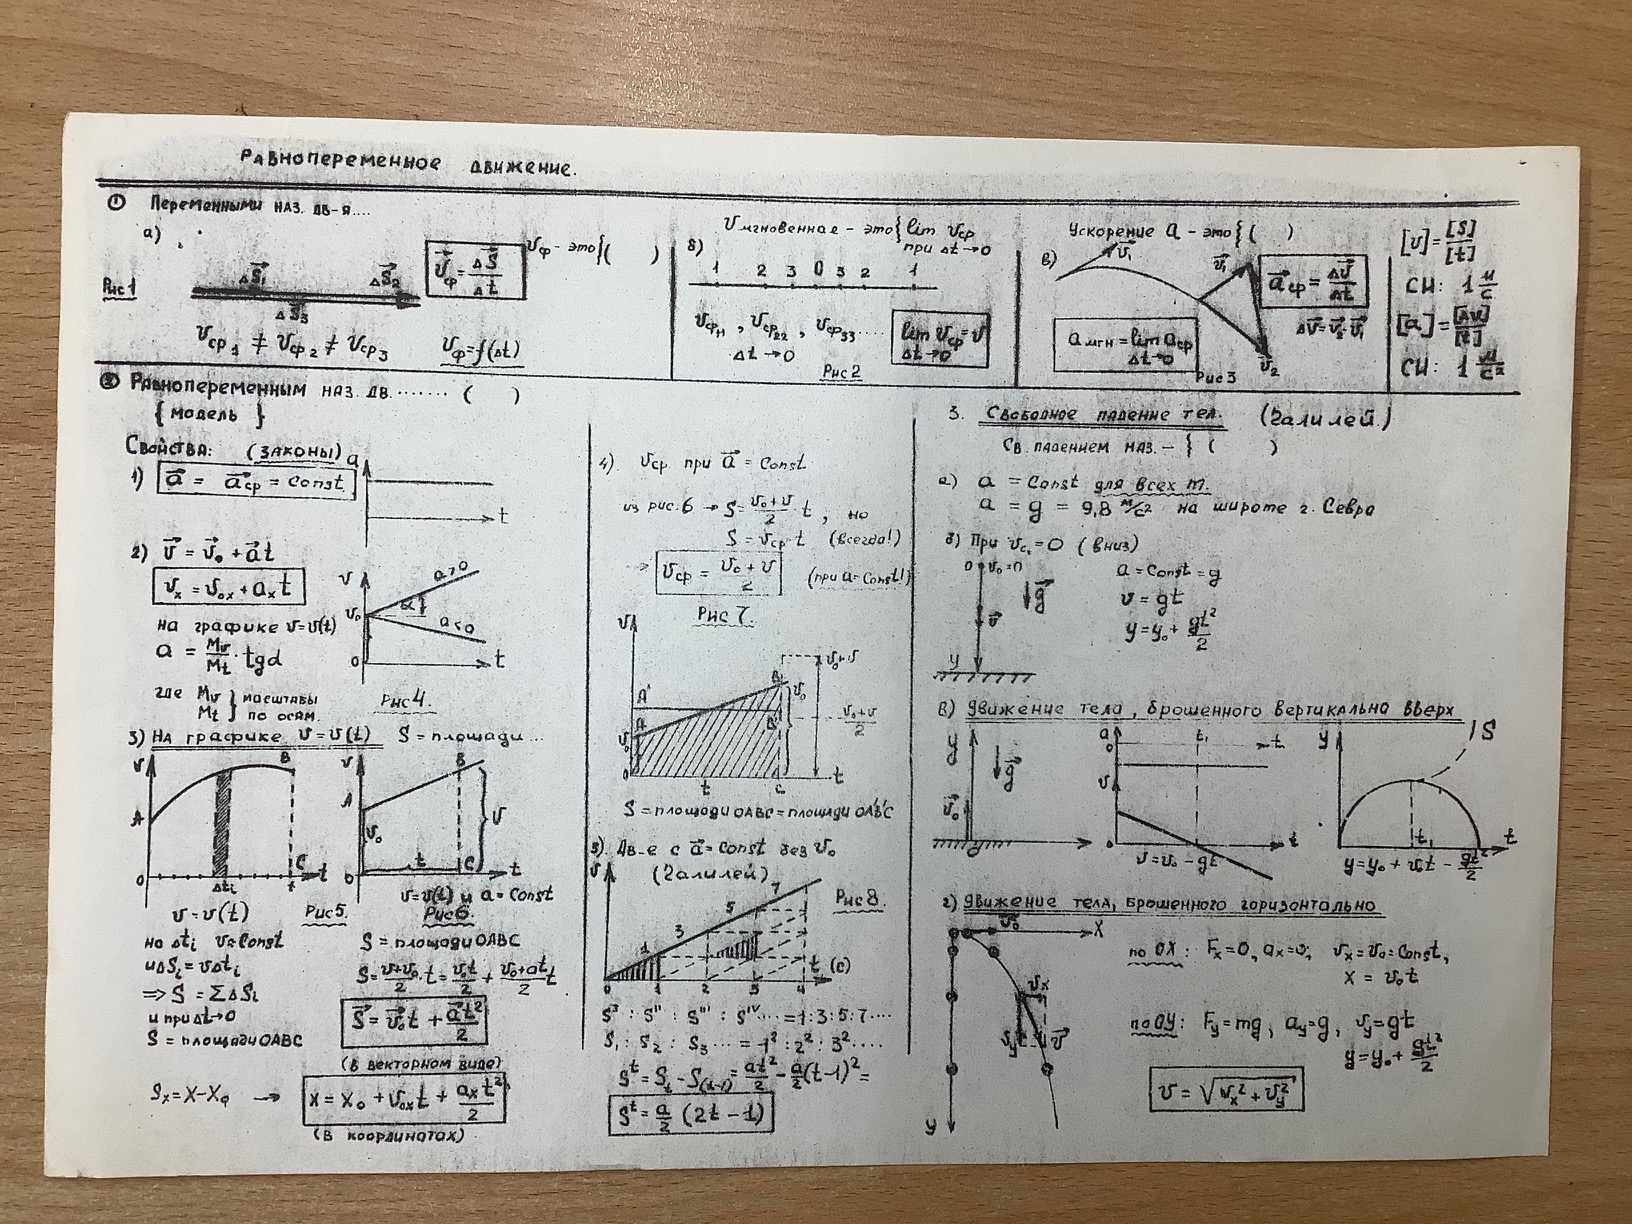 Равнопеременное движение.
① Переменными наз. дв-я....
а)
Рис 1
ΔS⃗₁
ΔS⃗₂
ΔS⃗₃
v⃗ф = ΔS⃗/Δt
vф - это { ( )
vср₁ ≠ vср₂ ≠ vср₃
vф = f(Δt)
б)
v мгновенная - это { lim vср
при Δt→0
1 2 3 0 3 2 1
vср₁₁, vср₂₂, vср₃₃....
Δt→0
lim vср = v
Δt→0
Рис 2
в)
Ускорение a - это { ( )
v⃗₁
v⃗₁
a⃗ср = Δv⃗/Δt
Δv⃗ = v⃗₂ - v⃗₁
a мгн = lim aср
Δt→0
v⃗₂
Рис 3
[v] = [S]/[t]
СИ: 1 м/с
[a] = [Δv]/[t]
СИ: 1 м/с²
② Равнопеременным наз. дв....... ( )
{ модель }
Свойства: (законы)
1) a⃗ = a⃗ср = const
a
t
2) v⃗ = v⃗₀ + a⃗t
vₓ = v₀ₓ + aₓt
на графике v=v(t)
a = Mv/Mt · tgα
где Mv
Mt } масштабы по осям.
v
a>0
v₀
α
a<0
0
t
Рис 4.
3) На графике v=v(t) S = площади...
v
A
B
0
Δtᵢ
t
C
t
v = v(t)
Рис 5.
на Δtᵢ v≈const
и ΔSᵢ = vΔtᵢ
=> S = ΣΔSᵢ
и при Δt→0
S = площади OABC
Sₓ = X - X₀ →
v
A
B
v₀
v
0
t
C
t
v=v(t) и a=const
Рис 6.
S = площади OABC
S = (v+v₀)/2 · t = v₀t/2 + (v₀+at)/2 t
S⃗ = v⃗₀t + a⃗t²/2
(в векторном виде)
x = x₀ + v₀ₓt + aₓt²/2
(в координатах)
4). vср при a⃗ = const
из рис. 6 → S = (v₀+v)/2 · t, но
S = vср t (всегда!)
→ vср = (v₀+v)/2 (при a=const!)
Рис 7.
v
A'
A
v₀
0
t
C
t
B
B'
v₀
v₀+v
(v₀+v)/2
S = площади OABC = площади OA'B'C
5). Дв-е с a⃗=const без v₀
(Галилей)
v
1
3
5
7
Рис 8.
0 1 2 3 4
t (c)
Sᴵ : Sᴵᴵ : Sᴵᴵᴵ : Sᴵⱽ.... = 1:3:5:7....
S₁ : S₂ : S₃.... = 1² : 2² : 3²....
Sᵗ = Sₜ - S₍ₜ₋₁₎ = at²/2 - a/2 (t-1)² =
Sᵗ = a/2 (2t-1)
3. Свободное падение тел. (Галилей.)
Св. падением наз. - { ( )
а) a = const для всех m.
a = g = 9,8 м/с² на широте г. Севра
б) При v₀=0 (вниз)
0 v₀=0
g⃗
v⃗
y
a = const = g
v = gt
y = y₀ + gt²/2
в) Движение тела, брошенного вертикально вверх
y
g⃗
v⃗₀
a
0
t₁
t
v
0
t
v = v₀ - gt
y
S
t₁
t
y = y₀ + v₀t - gt²/2
г) Движение тела, брошенного горизонтально
v⃗₀
X
vₓ
v⃗
y
по OX: Fₓ=0, aₓ=0; vₓ=v₀=const,
X = v₀t
по OY: Fy = mg, ay = g, vy = gt
y = y₀ + gt²/2
v = √(vₓ² + vy²)